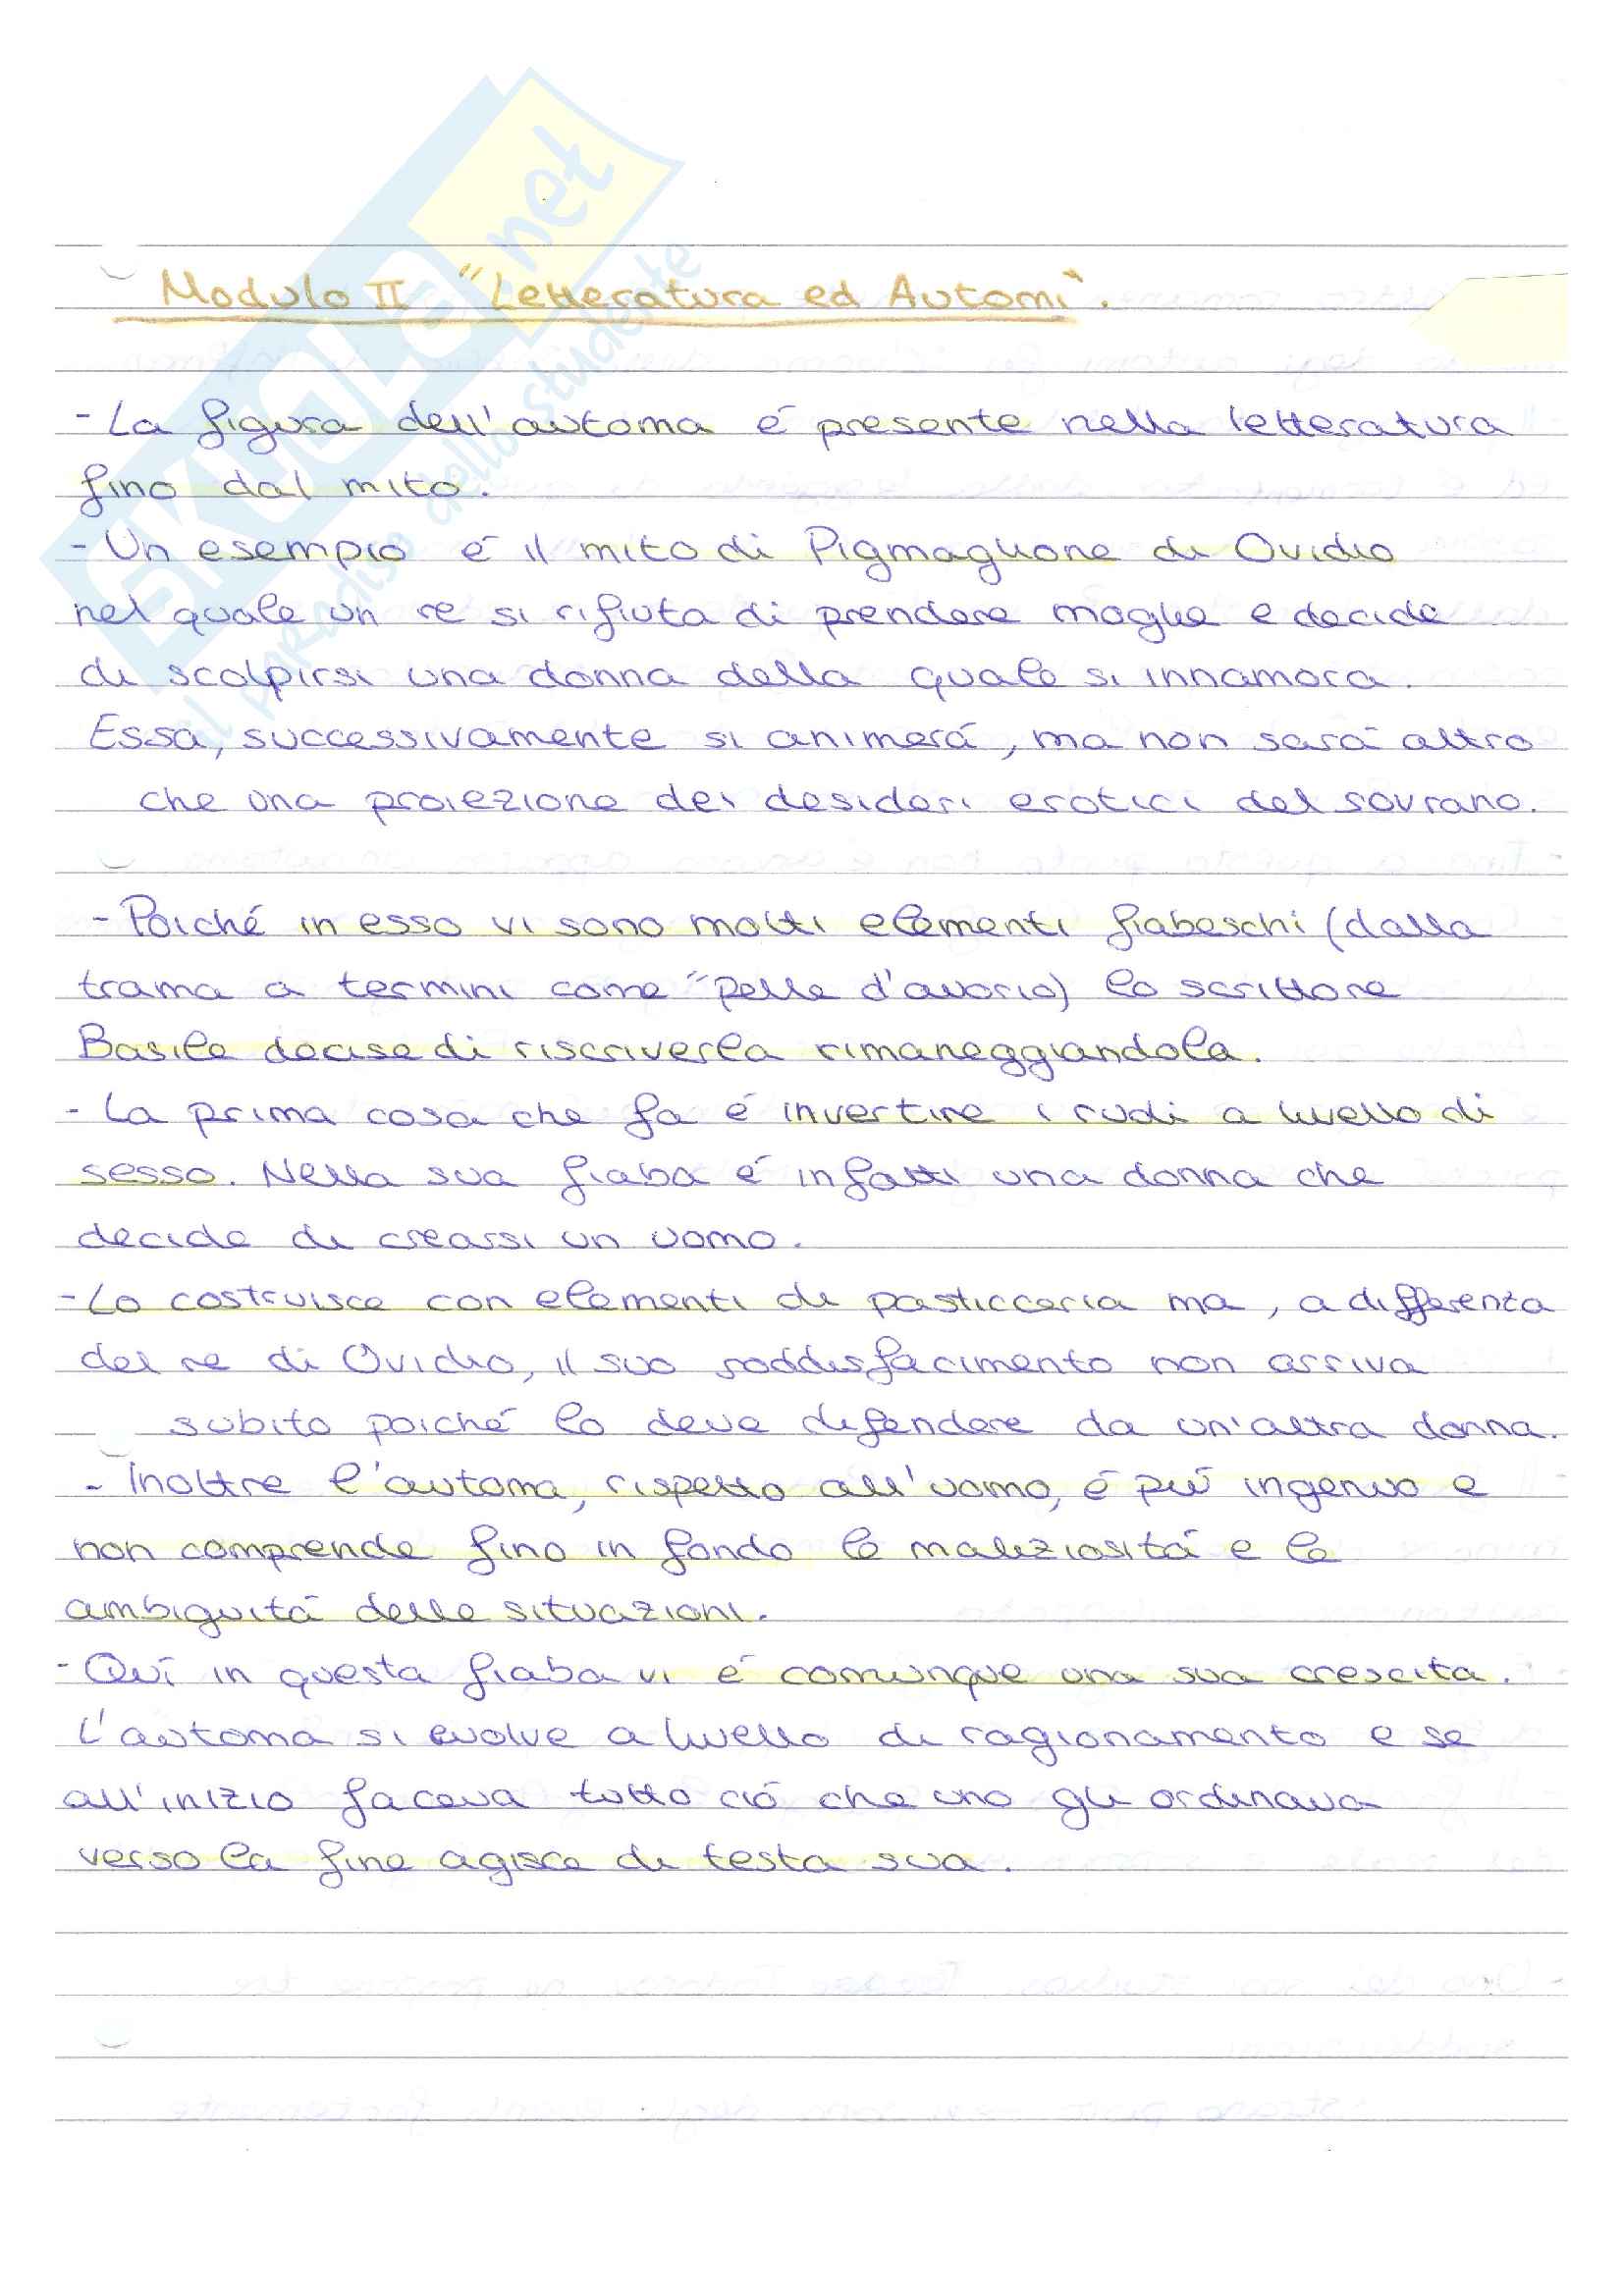 SKUOLA.net
il paradiso dello studente
Modulo II "Letteratura ed Automi".
- La figura dell'automa é presente nella letteratura
fino dal mito.
- Un esempio é il mito di Pigmaglione di Ovidio
nel quale un re si rifiuta di prendere moglie e decide
di scolpirsi una donna della quale si innamora.
Essa, successivamente si animerá, ma non sará altro
che una proiezione dei desideri erotici del sovrano.
- Poiché in esso vi sono molti elementi fiabeschi (dalla
trama a termini come "pelle d'avorio) lo scrittore
Basile decise di riscriverla rimaneggiandola.
- La prima cosa che fa é invertire i ruoli a livello di
sesso. Nella sua fiaba é infatti una donna che
decide di crearsi un uomo.
- Lo costruisce con elementi di pasticceria ma, a differenza
del re di Ovidio, il suo soddisfacimento non arriva
subito poiché lo deve difendere da un'altra donna.
- Inoltre l'automa, rispetto all'uomo, é piú ingenuo e
non comprende fino in fondo le maliziositá e le
ambiguitá delle situazioni.
- Quí in questa fiaba vi é comunque una sua crescita.
L'automa si evolve a livello di ragionamento e se
all'inizio faceva tutto ció che uno gli ordinava
verso la fine agisce di testa sua.